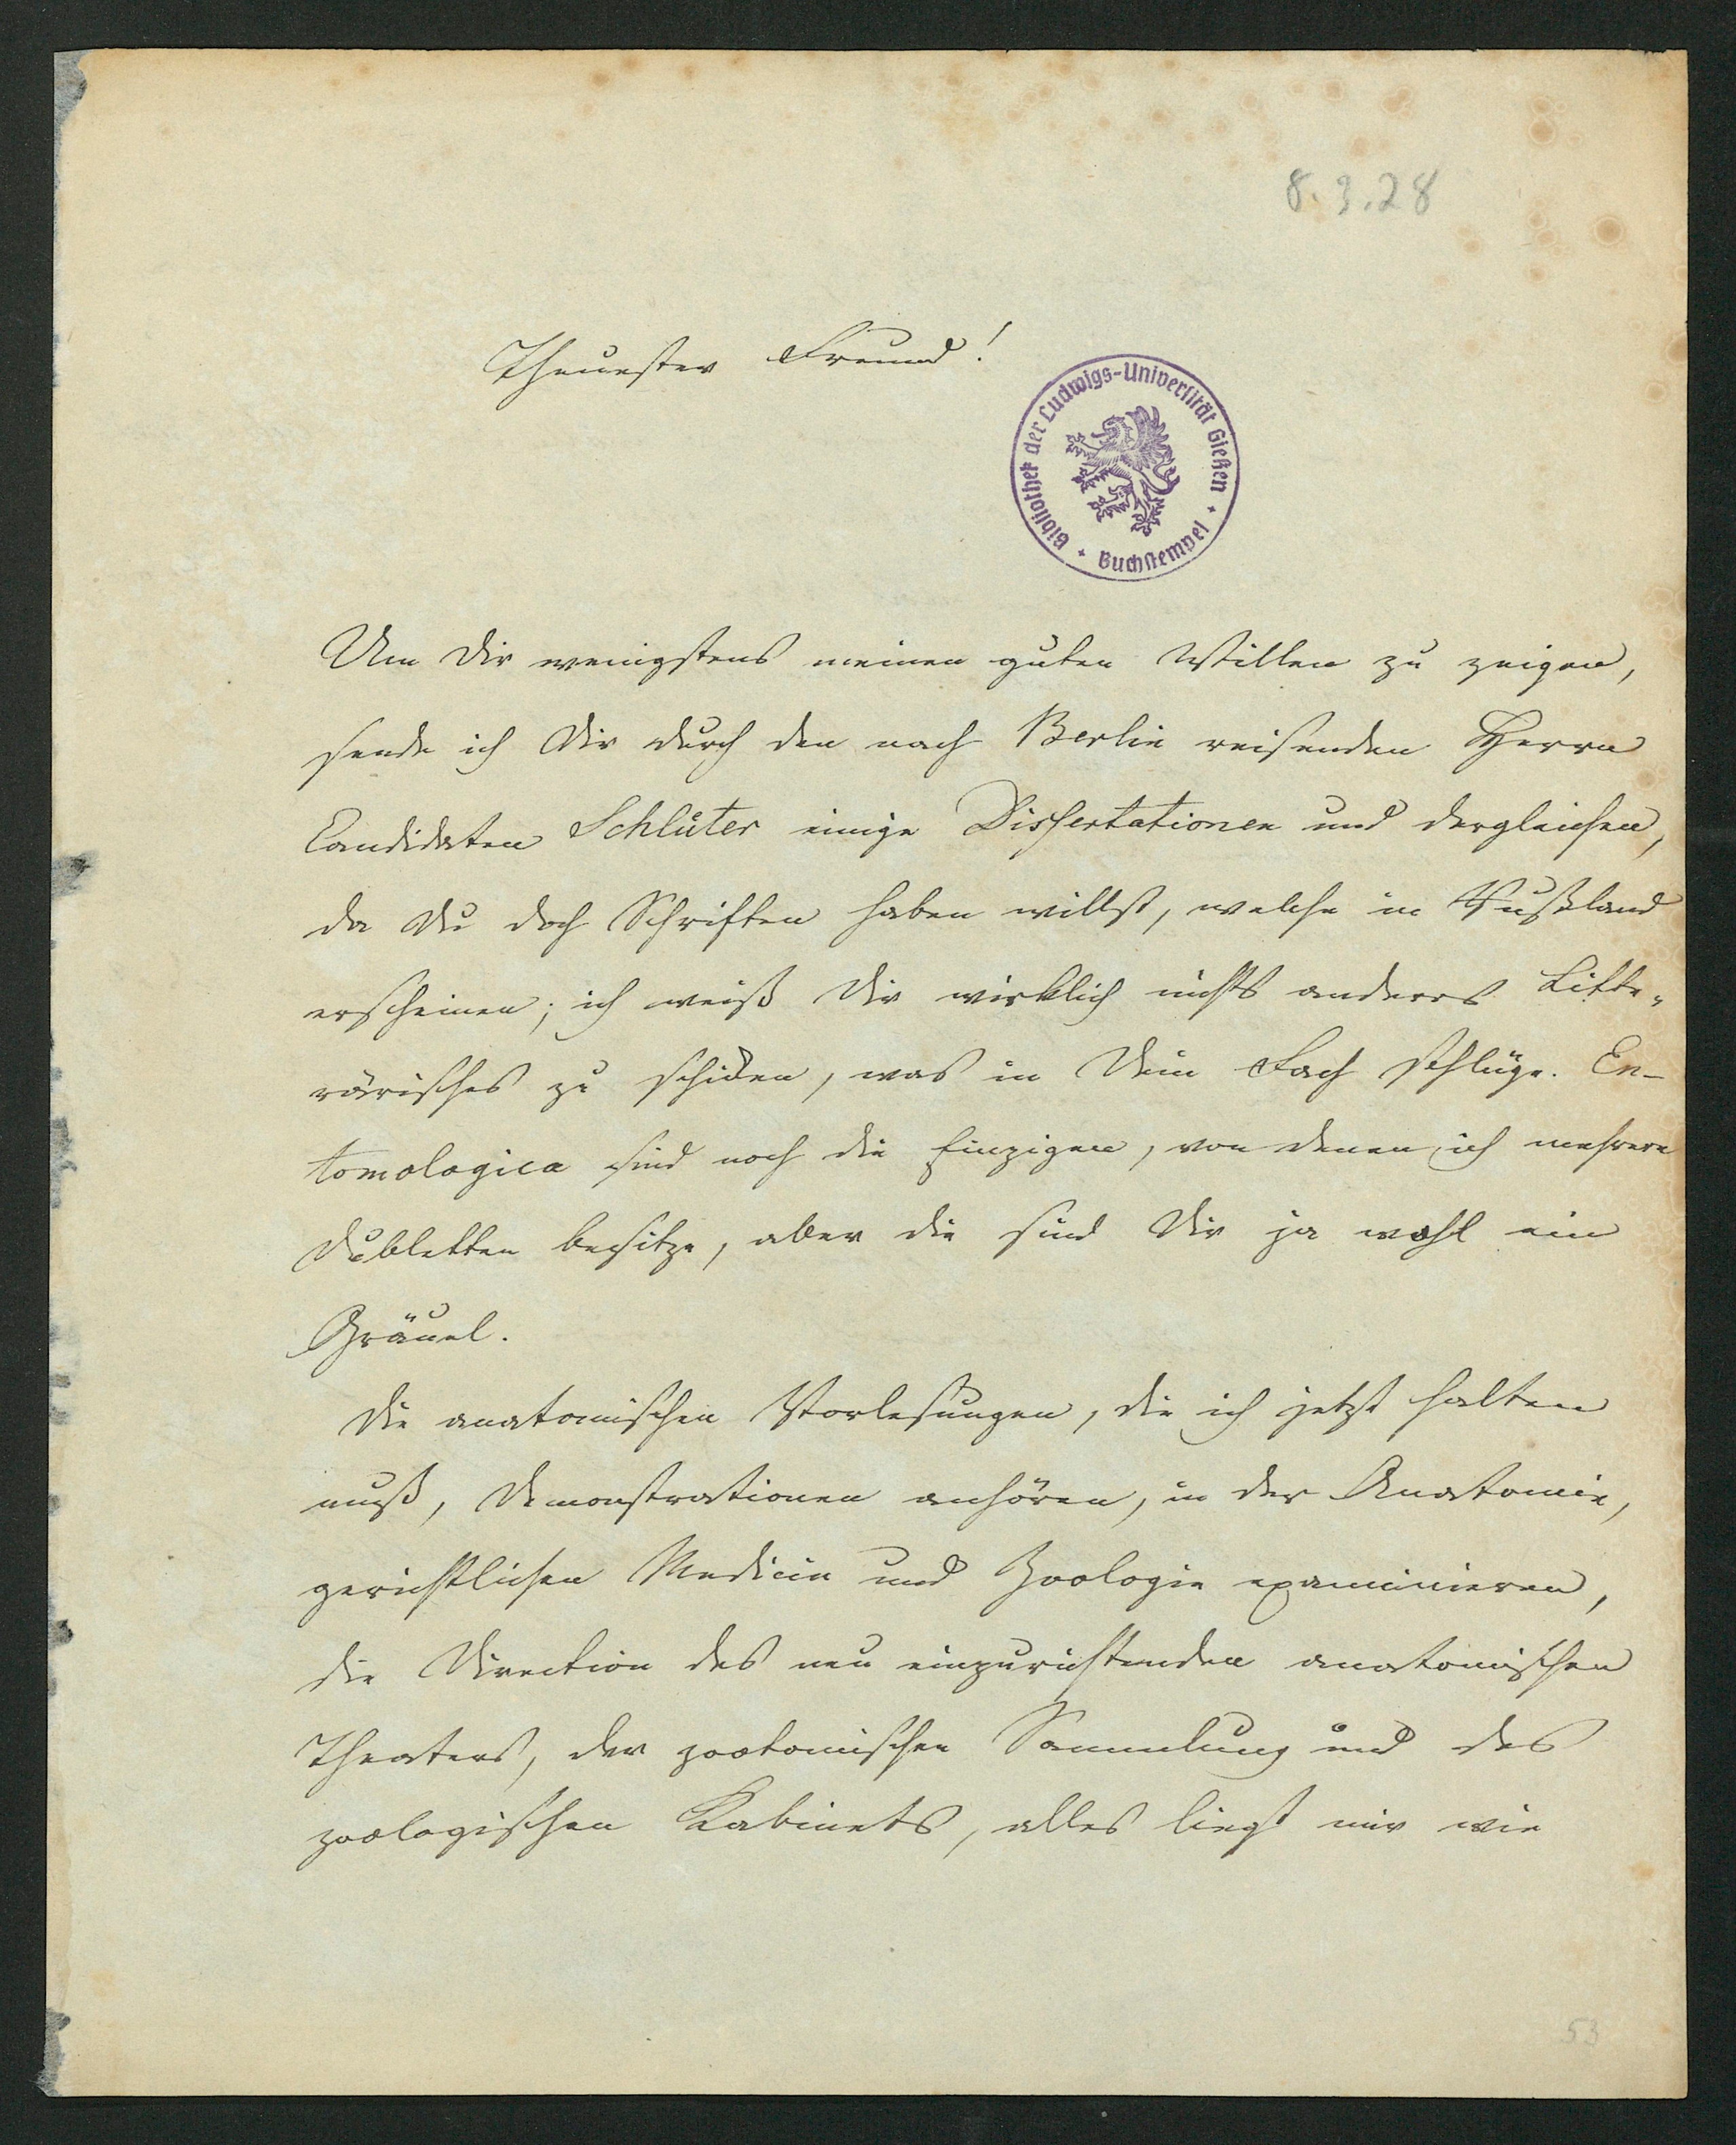 8.3.28
Theuester Freund!
Bibliothek der Ludwigs-Universität Gießen + Buchstempel +
Um Dir wenigstens meinen guten Willen zu zeigen,
sende ich Dir durch den nach Berlin reisenden Herrn
Candidaten Schlüter einige Dissertationen und dergleichen,
da Du doch Schriften haben willst, welche in Rußland
erscheinen; ich weiß Dir wirklich nichts anderes Litte-
rärisches zu schicken, was in Dein Fach schlüge. En-
tomologica sind noch die Einzigen, von denen ich mehrere
Dubletten besitze, aber die sind Dir ja wohl ein
Gräuel.
Die anatomischen Vorlesungen, die ich jetzt halten
muß, Demonstrationen anhören, in der Anatomie,
gerichtlichen Medicin und Zoologie examinieren,
die Direction des neu einzurichtenden anatomischen
Theaters, der zootomischen Sammlung und des
zoologischen Kabinets, alles liegt mir wie
53